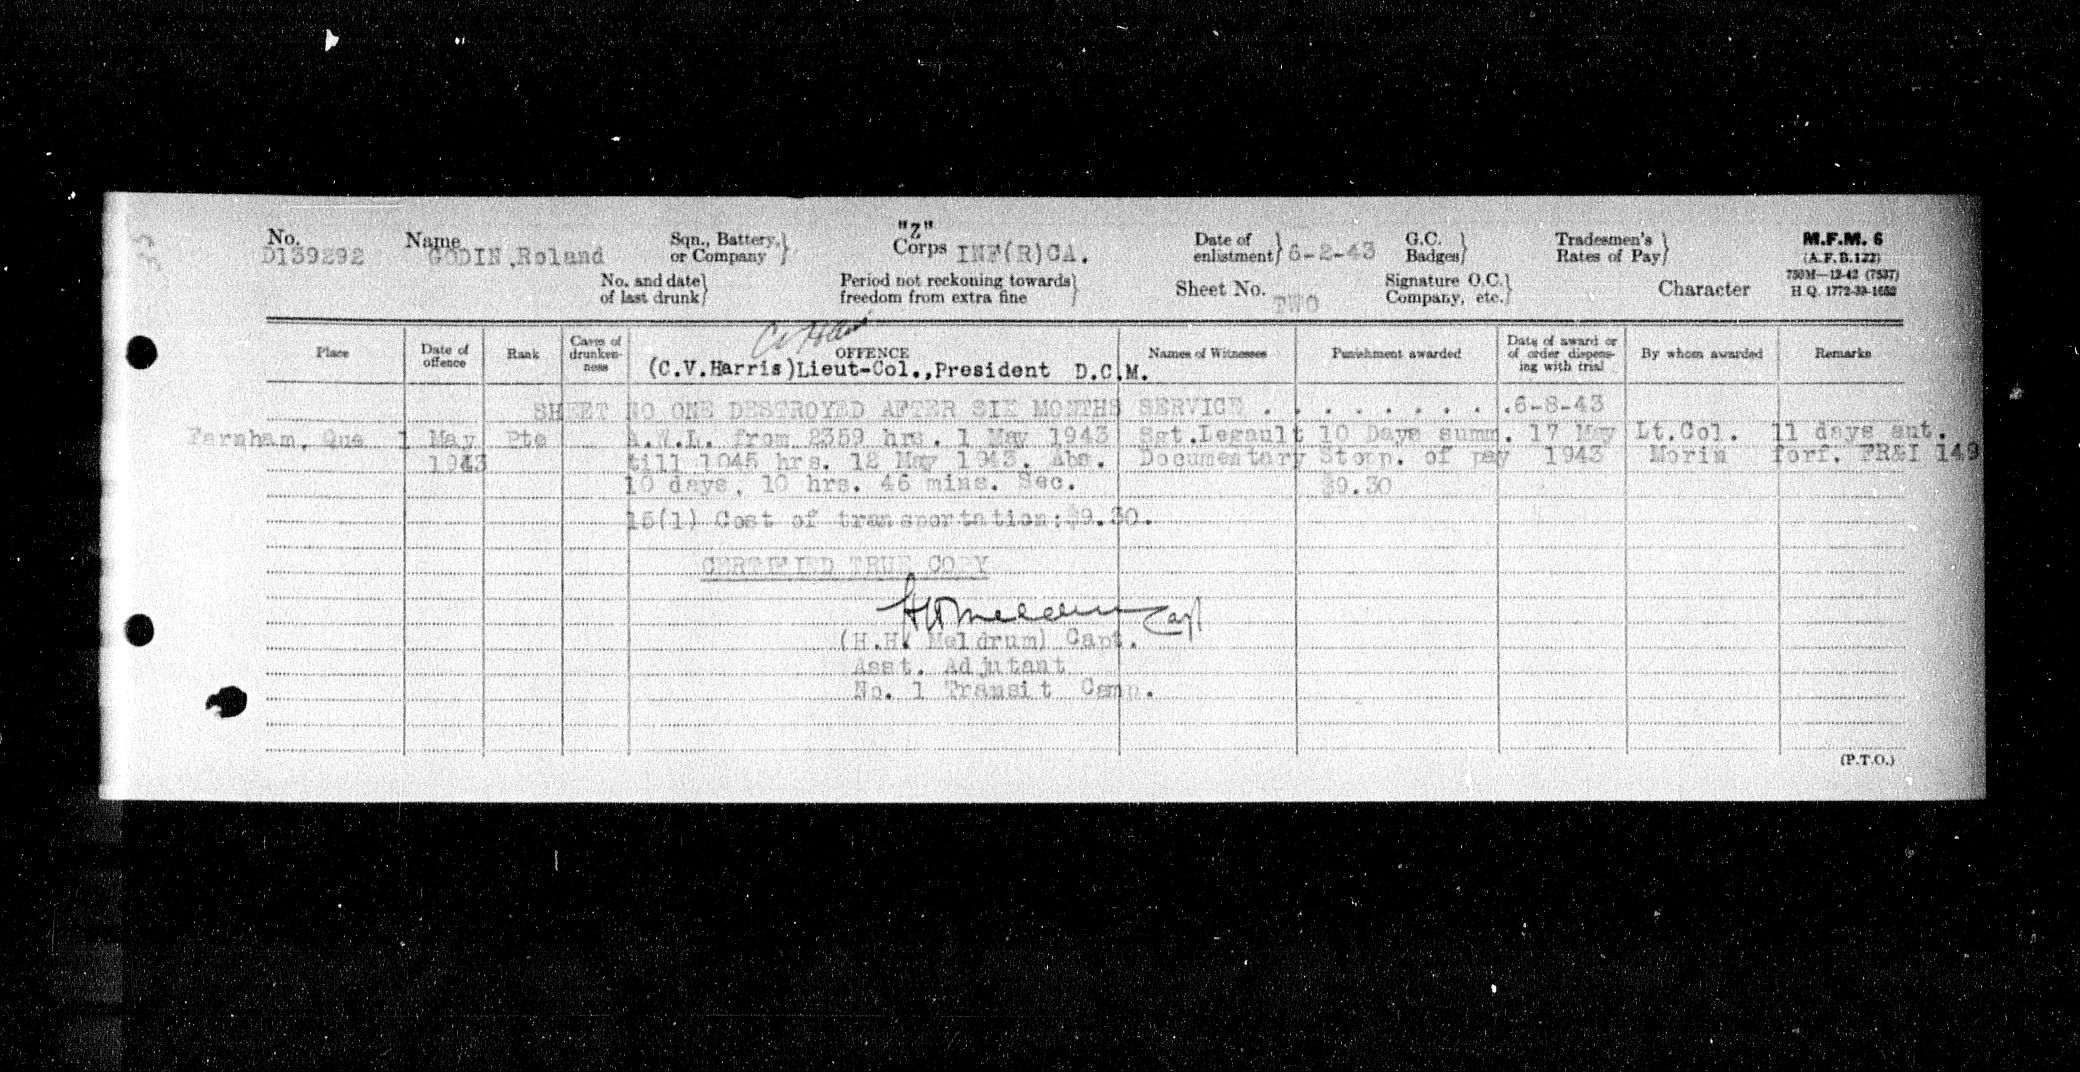 "Z"
No. D139292 Name GODIN, Roland Sqn., Battery, or Company } Corps INF(R)CA. Date of enlistment } 6-2-43 G.C. Badges } Tradesmen's Rates of Pay } M.F.M. 6
(A.F.B.122)
750M—12-42 (7537)
H.Q. 1772-39-1652
No. and date of last drunk } Period not reckoning towards freedom from extra fine } Sheet No. TWO Signature O.C. Company, etc. } Character
Place Date of offence Rank Cases of drunkenness OFFENCE Names of Witnesses Punishment awarded Date of award or of order dispensing with trial By whom awarded Remarks
(C.V.Harris)Lieut-Col.,President D.C.M.
SHEET NO ONE DESTROYED AFTER SIX MONTHS SERVICE . . . . . . . . .6-8-43
Farnham, Que 1 May Pte A.W.L. from 2359 hrs. 1 May 1943 Sgt.Legault 10 Days summ. 17 May Lt.Col. 11 days aut.
1943 till 1045 hrs. 12 May 1943. Abs. Documentary Stopp. of pay 1943 Morin forf. FR&I 149
10 days, 10 hrs. 46 mins. Sec. $9.30
15(1) Cost of transportation:$9.30.
CERTIFIED TRUE COPY
HHMeldrum Capt
(H.H. Meldrum) Capt.
Asst. Adjutant
No. 1 Transit Camp.
(P.T.O.)